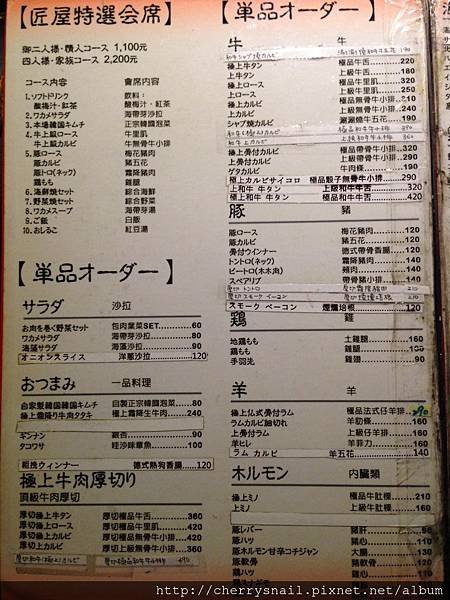 【匠屋特選会席】
御二人様・情人コース 1,100元
四人様・家族コース 2,200元
コース内容 會席内容
1.ソフトドリンク 飲料：
酸梅汁・紅茶 酸梅汁・紅茶
2.ワカメサラダ 海帶芽沙拉
3.本場韓国キムチ 正宗韓國泡菜
4.牛上級ロース 牛里肌
牛上級カルビ 牛無骨牛小排
5.豚ロース 梅花豬肉
豚カルビ 豬五花
豚トロ(ネック) 霜降豬肉
鶏もも 雞腿
6.海鮮焼セット 綜合海鮮
7.野菜焼セット 綜合野菜
8.ワカメスープ 海帶芽湯
9.ご飯 白飯
10.おしるこ 紅豆湯
【単品オーダー】
サラダ 沙拉
お肉を巻く野菜セット 包肉葉菜SET.........60
ワカメサラダ 海帶芽沙拉.........80
海藻サラダ 海藻沙拉.........90
オニオンスライス 洋蔥沙拉.........120
おつまみ 一品料理
自家製韓国韓国キムチ 自製正宗韓國泡菜.....80
極上霜降り牛肉タタキ 極上霜降生牛肉.....240
ギンナン 銀杏.........90
タコワサ 哇沙味章魚.........100
粗挽ウィンナー 德式熱狗香腸.........120
極上牛肉厚切り
頂級牛肉厚切
厚切極上牛タン 厚切極品牛舌.........360
厚切極上ロース 厚切極品牛里肌.........420
厚切極上カルビ 厚切極品無骨牛小排...420
厚切上カルビ 厚切上級無骨牛小排...360
【単品オーダー】
牛 牛
極上牛タン 極品牛舌.........220
上牛タン 上級牛舌.........180
極上ロース 極品牛里肌.........320
上ロース 上級牛里肌.........250
極上カルビ 極品無骨牛小排...320
上カルビ 上級無骨牛小排...250
シャブ焼カルビ 涮涮燒牛五花.........190
極上骨付カルビ 極品帶骨牛小排...320
上骨付カルビ 上級帶骨牛小排...190
ゲタカルビ 牛肉條.........190
極上カルビサイコロ 極品骰子無骨牛小排.....290
上和牛 牛タン 上級和牛牛舌.........320
極上和牛 牛タン 極品和牛牛舌.........420
豚 豬
豚ロース 梅花豬肉.........120
豚カルビ 豬五花.........120
骨付ウインナー 德式帶骨香腸.........120
トントロ(ネック) 霜降豬肉.........140
ビートロ(木木肉) 頰肉.........140
スペアリブ 帶骨豬小排.........140
スモーク ベーコン 煙燻培根.........120
鶏 雞
地鶏もも 土雞腿.........160
鶏もも 雞腿.........100
手羽先 雞翅.........90
羊 羊
極上仏式骨付ラム 極品法式仔羊排
ラムカルビ細切れ 羊肋條.........160
上骨付ラム 上級仔羊排.........160
羊ヒレ 羊菲力.........160
ラム カルビ 羊五花.........140
ホルモン 内臟類
極上ミノ 極品牛肚樑.........210
上ミノ 上級牛肚樑.........160
豚レバー 豬肝
豚ハツ 豬心
豚ホルモン甘辛コチジャン 大腸
豚軟骨 豬軟骨
鶏ハツ 雞心
http://cherrysnail.pixnet.net/album